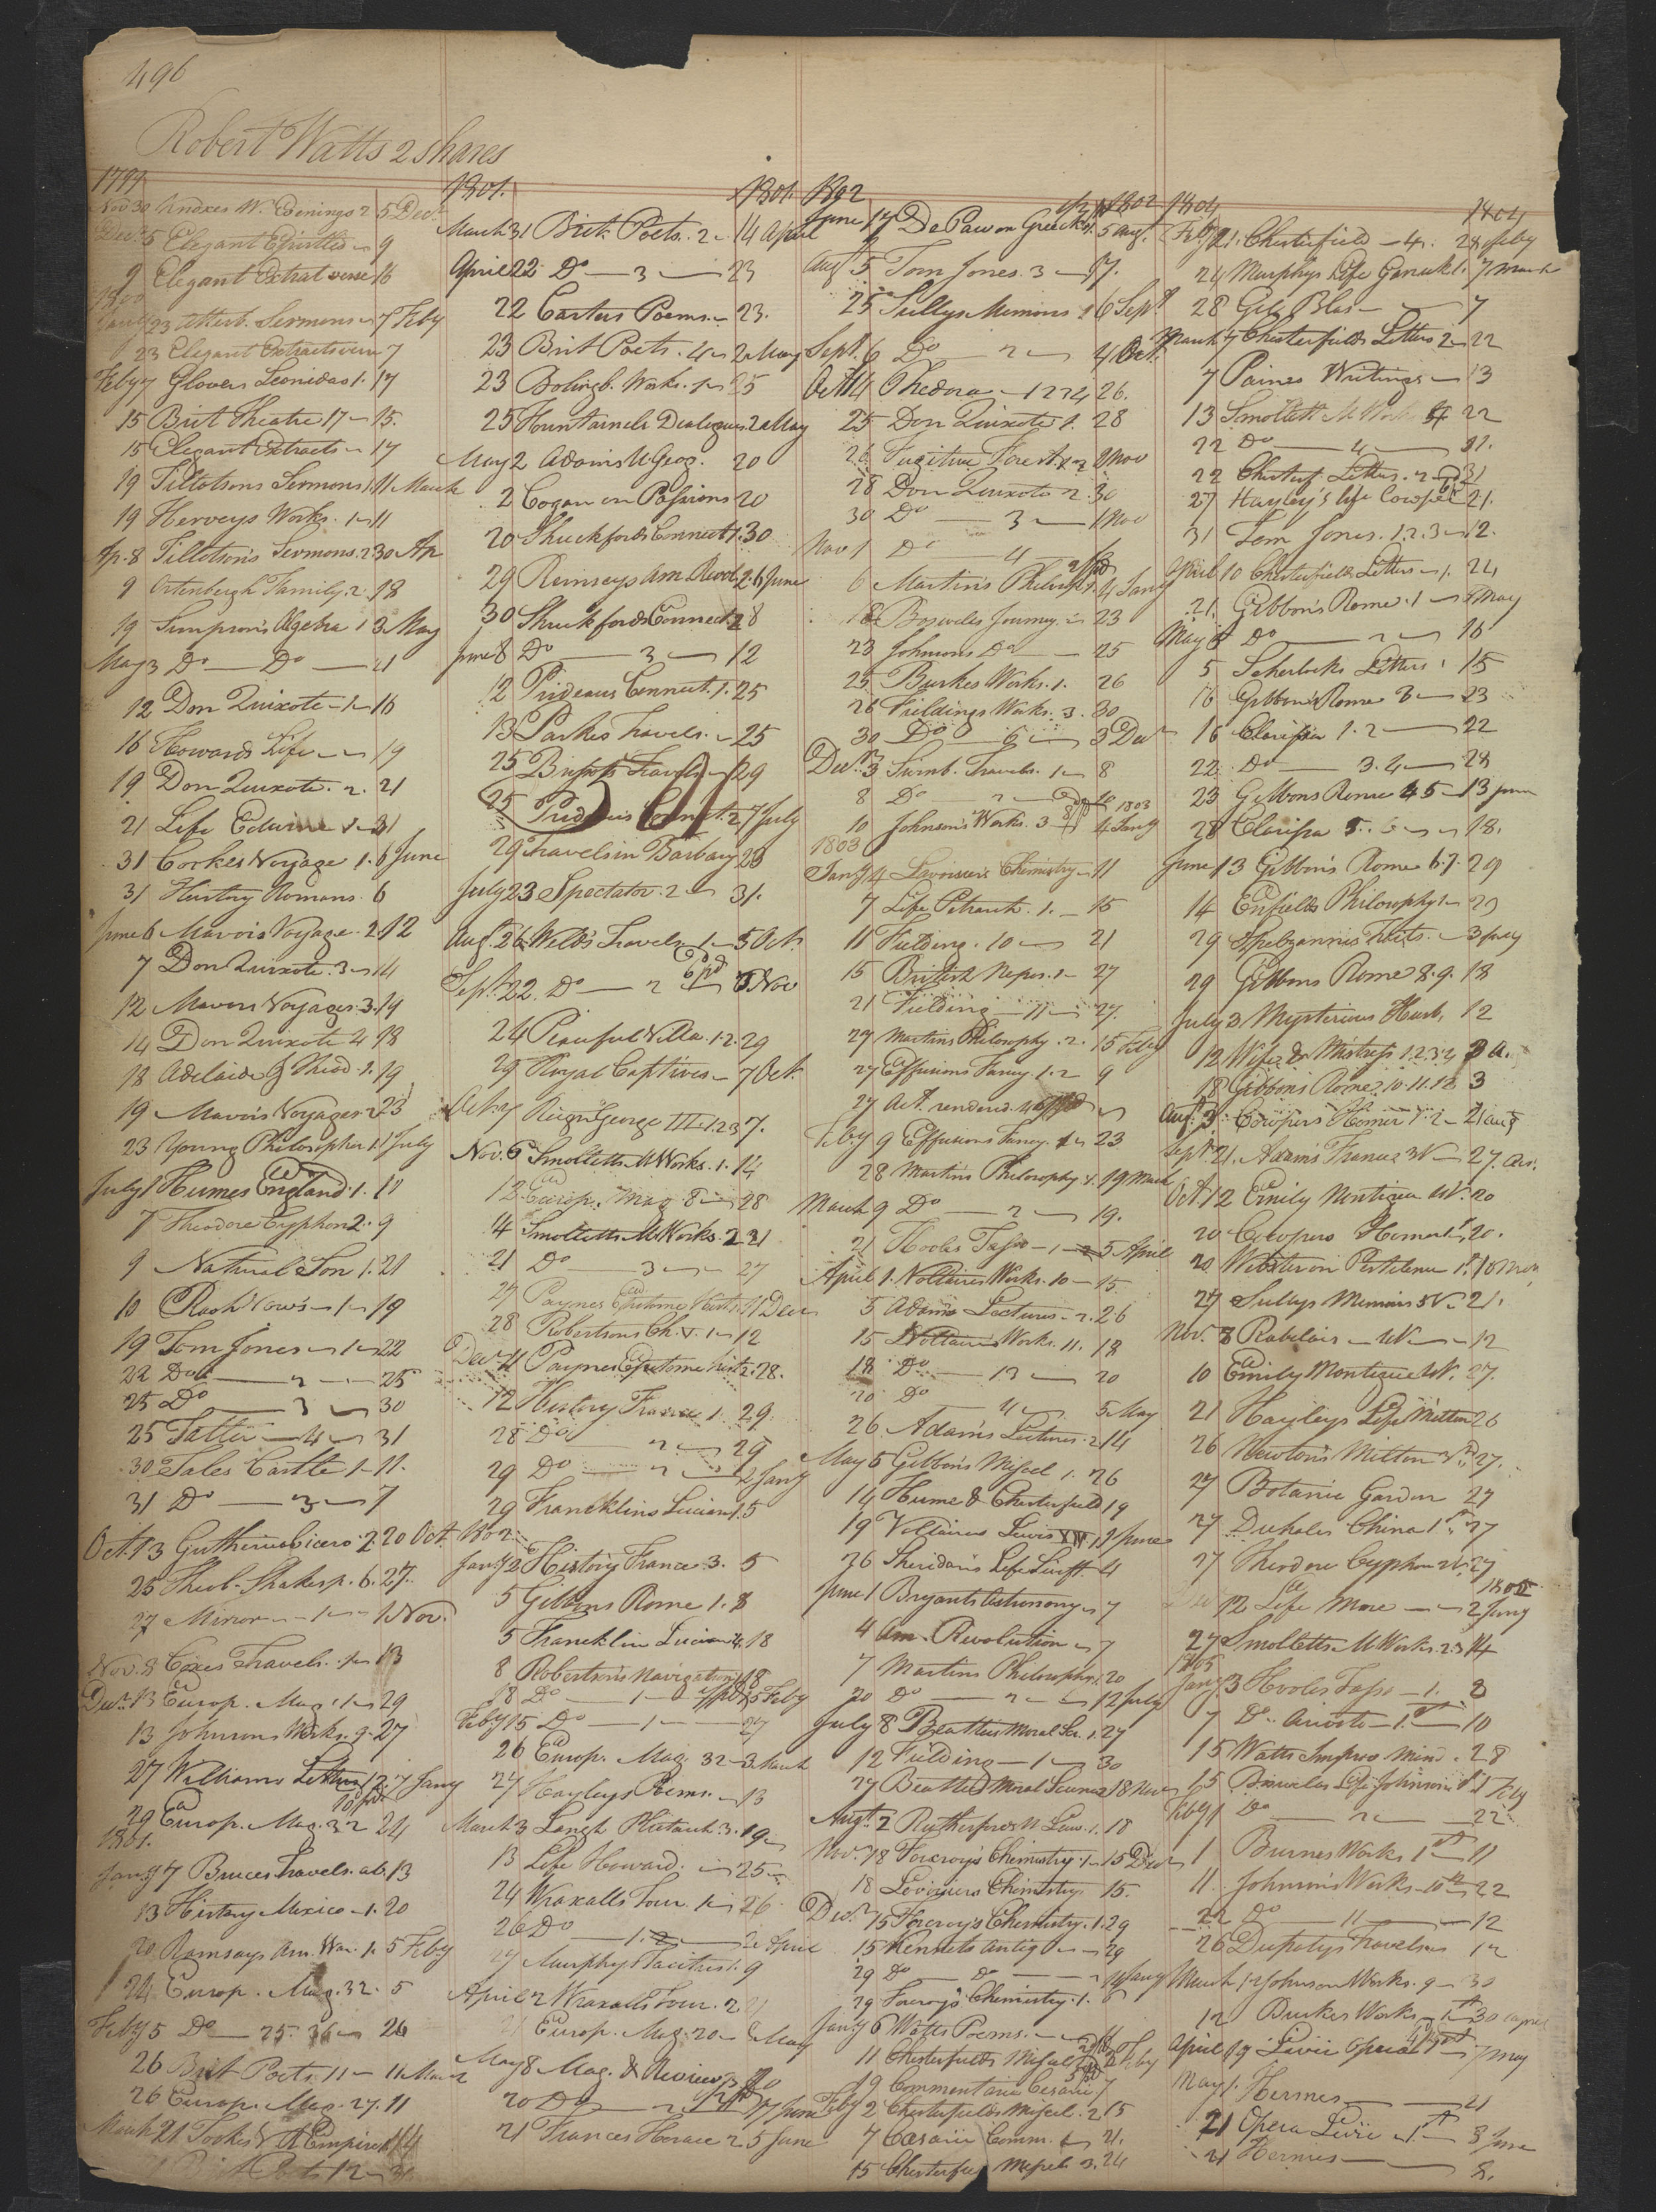 496
Robert Watts 2 shares
1799
Nov 30 Knoxes W. Evenings 2 5 Decr
Decr 5 Elegant Epistles 9
9 Elegant Extrat verse 16
1800
Jany 23 Atterb. Sermons 7 Feby
23 Elegant Extracts verse 7
Feby 7 Glovers Leonidas 1. 17
15 Brit Theatre 17 15.
15 Elegant Extracts 17
19 Tillotsons Sermons 1 11 March
19 Herveys Works. 1 11
Ap. 8 Tillotsons Sermons. 2 30 Ap
9 Ortenbergh Family. 2. 18
19 Simpson's Algebra 1 3 May
May 3 Do Do 21
12 Don Quixote 1 16
16 Howards Life 19
19 Don Quixote. 2. 21
21 Life Edwin 31
31 Cookes Voyage 1. 6 June
31 History Romans. 6
June 6 Mavors Voyage. 2. 12
7 Don Quixote. 3 14
12 Mavors Voyages. 3. 19
14 Don Quixote 4 18
18 Adelaide & Theod. 1. 19
19 Mavors Voyages 23
23 Young Philosopher 1. 1 July
July 1 Humes England. 1. 11
7 Theodore Cyphon 2. 9
9 Natural Son 1. 21
10 Rash Vows 1 19
19 Tom Jones 1 22
22 Do 2 25
25 Do 3 30
25 Tatler 4 31
30 Tales Castle 1 11.
31 Do 3 7
Oct. 13 Guthries Cicero. 2. 20 Oct.
25 Theob. Shakesp. 6. 27.
27 Mirror 1 1 Nov.
Nov. 8 Coxes Travels. 1 13
Decr 13 Europ. Mag. 1 29
13 Johnsons Works. 9. 27
27 Williams Letters 1.2. 7 Jany
29 Europ. Mag. 32 24
1801.
Jany 7 Bruces Travels. ab. 13
13 History Mexico 1. 20
20 Ramsays Am. War. 1. 5 Feby
24 Europ. Mag. 32. 5
Feby 5 Do 35. 36 26
26 Brit Poets. 11 11 March
26 Europ. Mag. 27. 11
March 21 Tookes R. Empire 1
Brit Poets 12 31
1801. 1801.
March 31 Brit Poets. 2 14 April
April 22 Do 3 23
22 Carters Poems. 23.
23 Brit Poets. 4 2 May
23 Bolingb. Works. 1 25
25 Fountainels Dialogues 2 May
May 2 Adams U Geog. 20
2 Cogan on Passions 20
20 Shuckfords Connect 1. 30
29 Ramseys Am. Revol. 2. 6 June
30 Shuckfords Connect. 2 8
June 8 Do 3 12
12 Prideaux Connect. 1. 25
13 Parkes Travels. 25
25 Brissots Travels 29
25 Prideaux Connect. 2 7 July
29 Travels in Barbary 23
July 23 Spectator. 2 31.
Aug. 26 Welds Travels 1 5 Oct.
Sept. 22. Do 2 6 pd 3 Nov
24 Peaceful Villa. 1.2. 29
29 Royal Captives 7 Oct.
Oct 7 Reign George III. 1.2.3 7.
Nov. 6 Smolletts M Works. 1. 14
12 Europ. Mag. 8 28
14 Smolletts M Works. 2 21
21 Do 3 27
27 Paynes Epitome Hist. 11 Decr
28 Robertsons Ch. V. 1 12
Decr 11 Paynes Epitome hist 2. 28.
12 History France 1. 29.
28 Do 2 29
29 Do 2 2 Jany
29 Francklins Lucian 1. 5
1802
Jany 2 History France 3. 5
5 Gibbons Rome 1. 8
5 Francklins Lucian 4. 18
8 Robertsons Navigation 18
18 Do 1 15 Feby
Feby 15 Do 1 27
26 Europ. Mag. 32 3 March
27 Hayleys Poems. 13
March 3 Langh Plutarch. 3. 19
13 Life Howard. 25
24 Wraxalls Tour. 1 26
26 Do 1.2. 2 April
27 Murphys Tacitus 1. 9
April 2 Wraxalls Tour. 2. 21
21 Europ. Mag. 20 8 May
May 8 Mag. & Reviews 20
20 Do 2 17 June
21 Frances Horace 2. 5 June
1802 1802
June 17 De Paw on Greeks 1. 5 Aug.
Aug 5 Tom Jones. 3 17.
25 Sullys Memoirs 1 6 Sept
Sept. 6 Do 2 4 Oct.
Oct 14 Thedora 1 2 3 4 26.
25 Don Quixote 1. 28
26 Fugitive Forest. 1 2 2 Nov
28 Don Quixote 2. 30
30 Do 3 1 Nov
Nov 1 Do 4
6 Martins Philosophy 1. 4 Jany
18 Boswels Journey. 23
23 Johnsons Do 25
25 Burkes Works. 1. 26
26 Fieldings Works. 3. 30
30 Do 6 3 Decr
Decr 3 Swinb. Travels. 1 8
8 Do 2 10
10 Johnson's Works. 3 4 Jany 1803
1803
Jany 4 Lavoisiers Chemistry 11
7 Life Petrarch. 1. 15
11 Fielding. 10 21
15 British Nepos. 1 27
21 Fielding 11 27.
27 Martins Philosophy. 2. 15 Feby
27 Effusions Fancy. 1.2 9
27 Act. rendered
Feby 9 Effusions Fancy. 1 23
28 Martins Philosophy 1. 19 March
March 9 Do 2 19.
21 Hooles Tasso 1 2 5 April
April 1. Voltaires Works. 10 15.
5 Adams Lectures 2. 26
15 Voltaires Works. 11. 18
18 Do 13 20
20 Do 4 5 May
26 Adam's Lectures. 2 14
May 5 Gibbon's Miscel 1. 26
14 Hume & Chesterfield 19
19 Voltaires Lewis XIV. 1 1 June
26 Sheridans Life Swift. 4
June 1 Bryants Astronomy 7
4 Am. Revolution 7
7 Martins Philosophy 1. 20
20 Do 2 12 July
July 8 Beatties Moral Sci. 1. 27
12 Fielding 1 30
27 Beatties Moral Science 2 18 Nov
Augt. 2 Rutherford's Law. 1. 18
Nov. 18 Forcroy's Chemistry. 1 15 Decr
18 Levoisiers Chemistry 15.
Decr. 15 Forcroy's Chemistry. 1. 29
15 Kennets Antiq 29
29 Do Do 11 Jany
29 Forcroys Chemistry. 1. 6
Jany 6 Watts Poems. 11
11 Chesterfields Miscel. 2 Feby
19 Commentaria Cesarii 7
Feby 2 Chesterfields Miscel. 2 15
7 Caesarii Comm. 21.
15 Chesterfields Miscel. 3. 24
1804 1804
Feby 21. Chesterfield 4. 28 Feby
24 Murphys Life Garrick 1. 7 March
28 Gil Blas 7
March 7 Chesterfields Letters 2 22
7 Paines Writings 13
13 Smollett M Works 22
22 Do 4 31.
22 Chesterf. Letters. 2. 31
27 Hayley's life Cowper 21.
31 Tom Jones. 1.2.3 12.
April 10 Chesterfields Letters 1. 24
21. Gibbon's Rome. 1 5 May
May 5 Do 2 16
5 Scherlocks Letters 1 15
16 Gibbon's Rome 3 23
16 Clarissa 1. 2 22
22 Do 3.4 28
23 Gibbons Rome 4 5 13 June
28 Clarissa 5.. 18.
June 13 Gibbon's Rome 6.7. 29
14 Enfields Philosophy 1 29
29 Spalzannies Tracts. 3 July
29 Gibbons Rome 8.9. 18
July 3 Mysterious Husb. 12
12 Wife & Mistress 1.2.3.4 3 A.
18 Gibbons Rome. 10.11.12 3
Aug. 3. Cowpers Homer 1 2 21 Aug
Sept. 21. Adams France 27.
Oct 12 Emily Montigue 20
20 Cowpers Homer 1st 20.
20 Webster on Pestilence 1st. 10 Nov.
27 Sullys Memoirs 5 V. 21.
Nov. 8 Rabelais 12
10 Emily Montigue 27.
21 Hayleys Life Milton 26
26 Newton's Milton 27.
27 Botanic Garden 27
27 Duhales China 1st 27
27 Theodore Cyphon 27
1805
Dec 12 Life More 2 Jany
27 Smolletts M Works. 2.3 14
1805
Jany 3 Hooles Tasso 1. 8
7 Do Ariosto 1. 10
15 Watts Improv Mind. 28
15 Boswels Life Johnson 1st 1 Feby
Feby 1 Do 2 22
1 Burnes Works 1st 11
11. Johnson's Works 10th 22
22 Do 11 12
26 Dupatys Travels 12
March 1. Johnson Works. 9 30
12 Burkes Works 1st 30 April
April 19 Livii Opera 7 May
May 1. Hermes 21
21 Opera Livii 1st 3 June
21 Hermes 8.